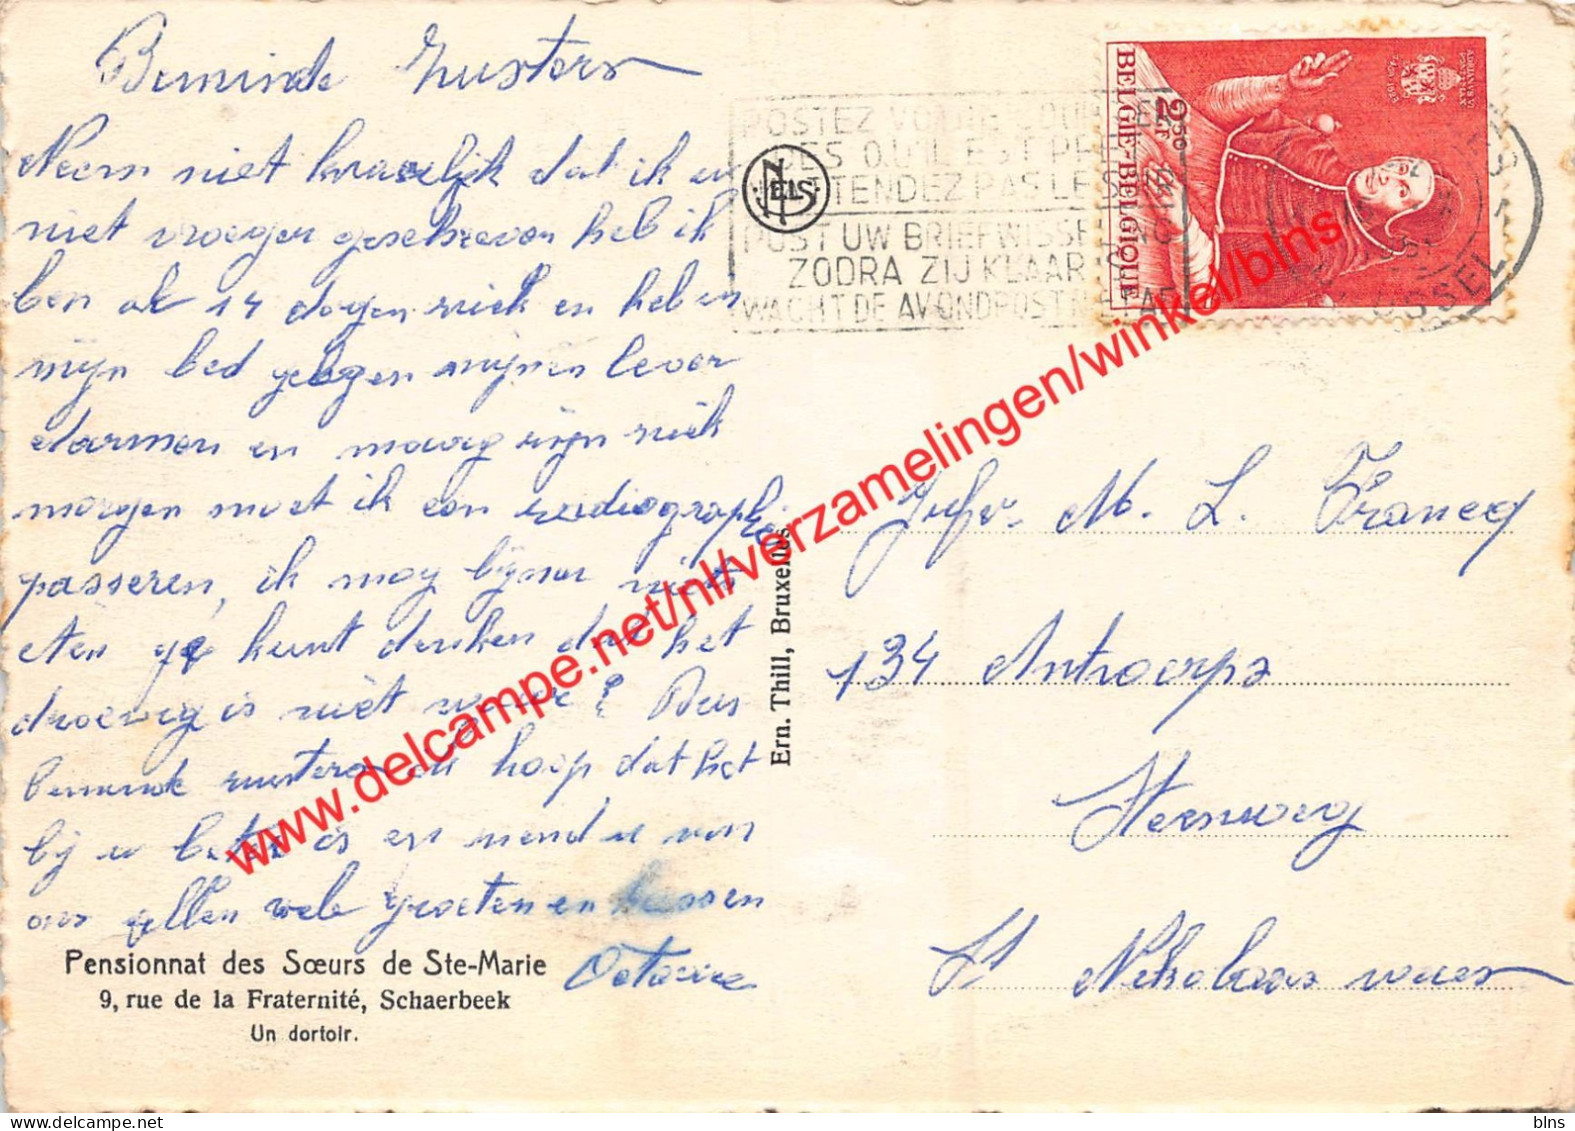 Beminde Zusters
Neem niet kwaelijk dat ik u
niet vroeger geschreven heb ik
ben al 14 dagen ziek en heb in
mijn bed gelegen mijnen lever
darmen en maag zijn ziek
morgen moet ik een radiographie
passeren, ik mag bijna niets
eten ge kunt denken dat het
droevig is niet waar? Dus
beminde zusters en hoop dat het
bij u beter is en vriend u van
ons allen vele groeten en kussen
Octavie
Pensionnat des Sœurs de Ste-Marie
9, rue de la Fraternité, Schaerbeek
Un dortoir.
Ern. Thill, Bruxelles.
NELS
POSTEZ VOTRE COURRIER
DES QU'IL EST PRET
N'ATTENDEZ PAS LE SOIR
POST UW BRIEFWISSELING
ZODRA ZIJ KLAAR IS
WACHT DE AVONDPOST NIET AF
BELGIE-BELGIQUE
2F50
ADRIANUS VI
PONT. MAX.
Jufvr. M. L. Francq
134 Antwerps
Steenweg
St Nikolaas waes
www.delcampe.net/nl/verzamelingen/winkel/blns
blns